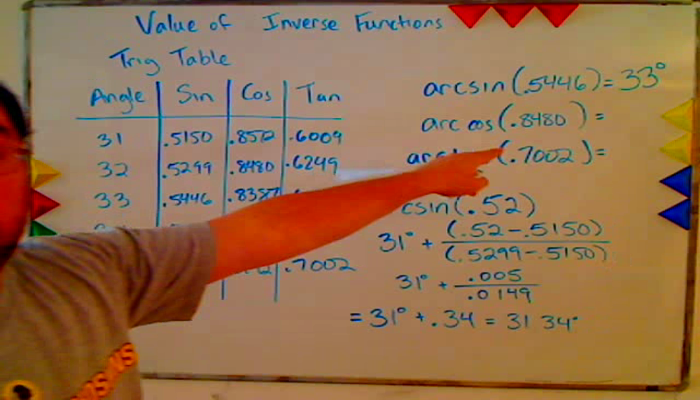 Value of Inverse Functions
Trig Table
Angle Sin Cos Tan
31 .5150 .8572 .6009
32 .5299 .8480 .6249
33 .5446 .8387
.7002
arcsin(.5446)=33°
arc cos(.8480)=
(.7002)=
csin(.52)
31° + (.52-.5150)
(.5299-.5150)
31° + .005
.0149
= 31° + .34 = 31.34°